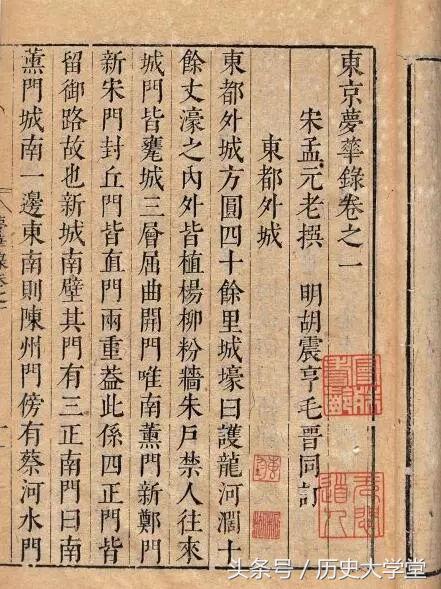 東京夢華錄卷之一
宋孟元老撰 明胡震亨毛晉同訂
東都外城
東都外城方圓四十餘里城壕曰護龍河濶十
餘丈濠之內外皆植楊柳粉牆朱戶禁人往來
城門皆甕城三層屈曲開門唯南薰門新鄭門
新宋門封丘門皆直門兩重葢此係四正門皆
留御路故也新城南壁其門有三正南門曰南
薰門城南一邊東南則陳州門傍有蔡河水門
头条号 / 历史大学堂